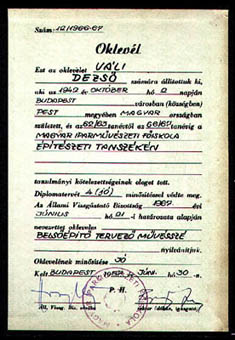 Szám: 12/1966-67
Oklevél
Ezt az oklevelet VÁLI
DEZSŐ számára állítottuk ki,
aki 1942 év OKTÓBER hó 2 napján
BUDAPEST városban (községben)
PEST megyében MAGYAR országban
született, és az 62/63 tanévtől 66/67 tanévig a
MAGYAR IPARMŰVÉSZETI FŐISKOLA
ÉPÍTÉSZETI TANSZÉKÉN
tanulmányi kötelezettségeinek eleget tett.
Diplomatervét 4 (JÓ) minősítéssel védte meg.
Az Állami Vizsgáztató Bizottság 1967.
JÚNIUS hó 21-i határozata alapján
nevezettet okleveles
BELSŐÉPÍTŐ TERVEZŐ MŰVÉSSZÉ
nyilvánítjuk.
Oklevelének minősítése JÓ
Kelt BUDAPEST, 1967 JÚNI. hó 30-n.
P. H.